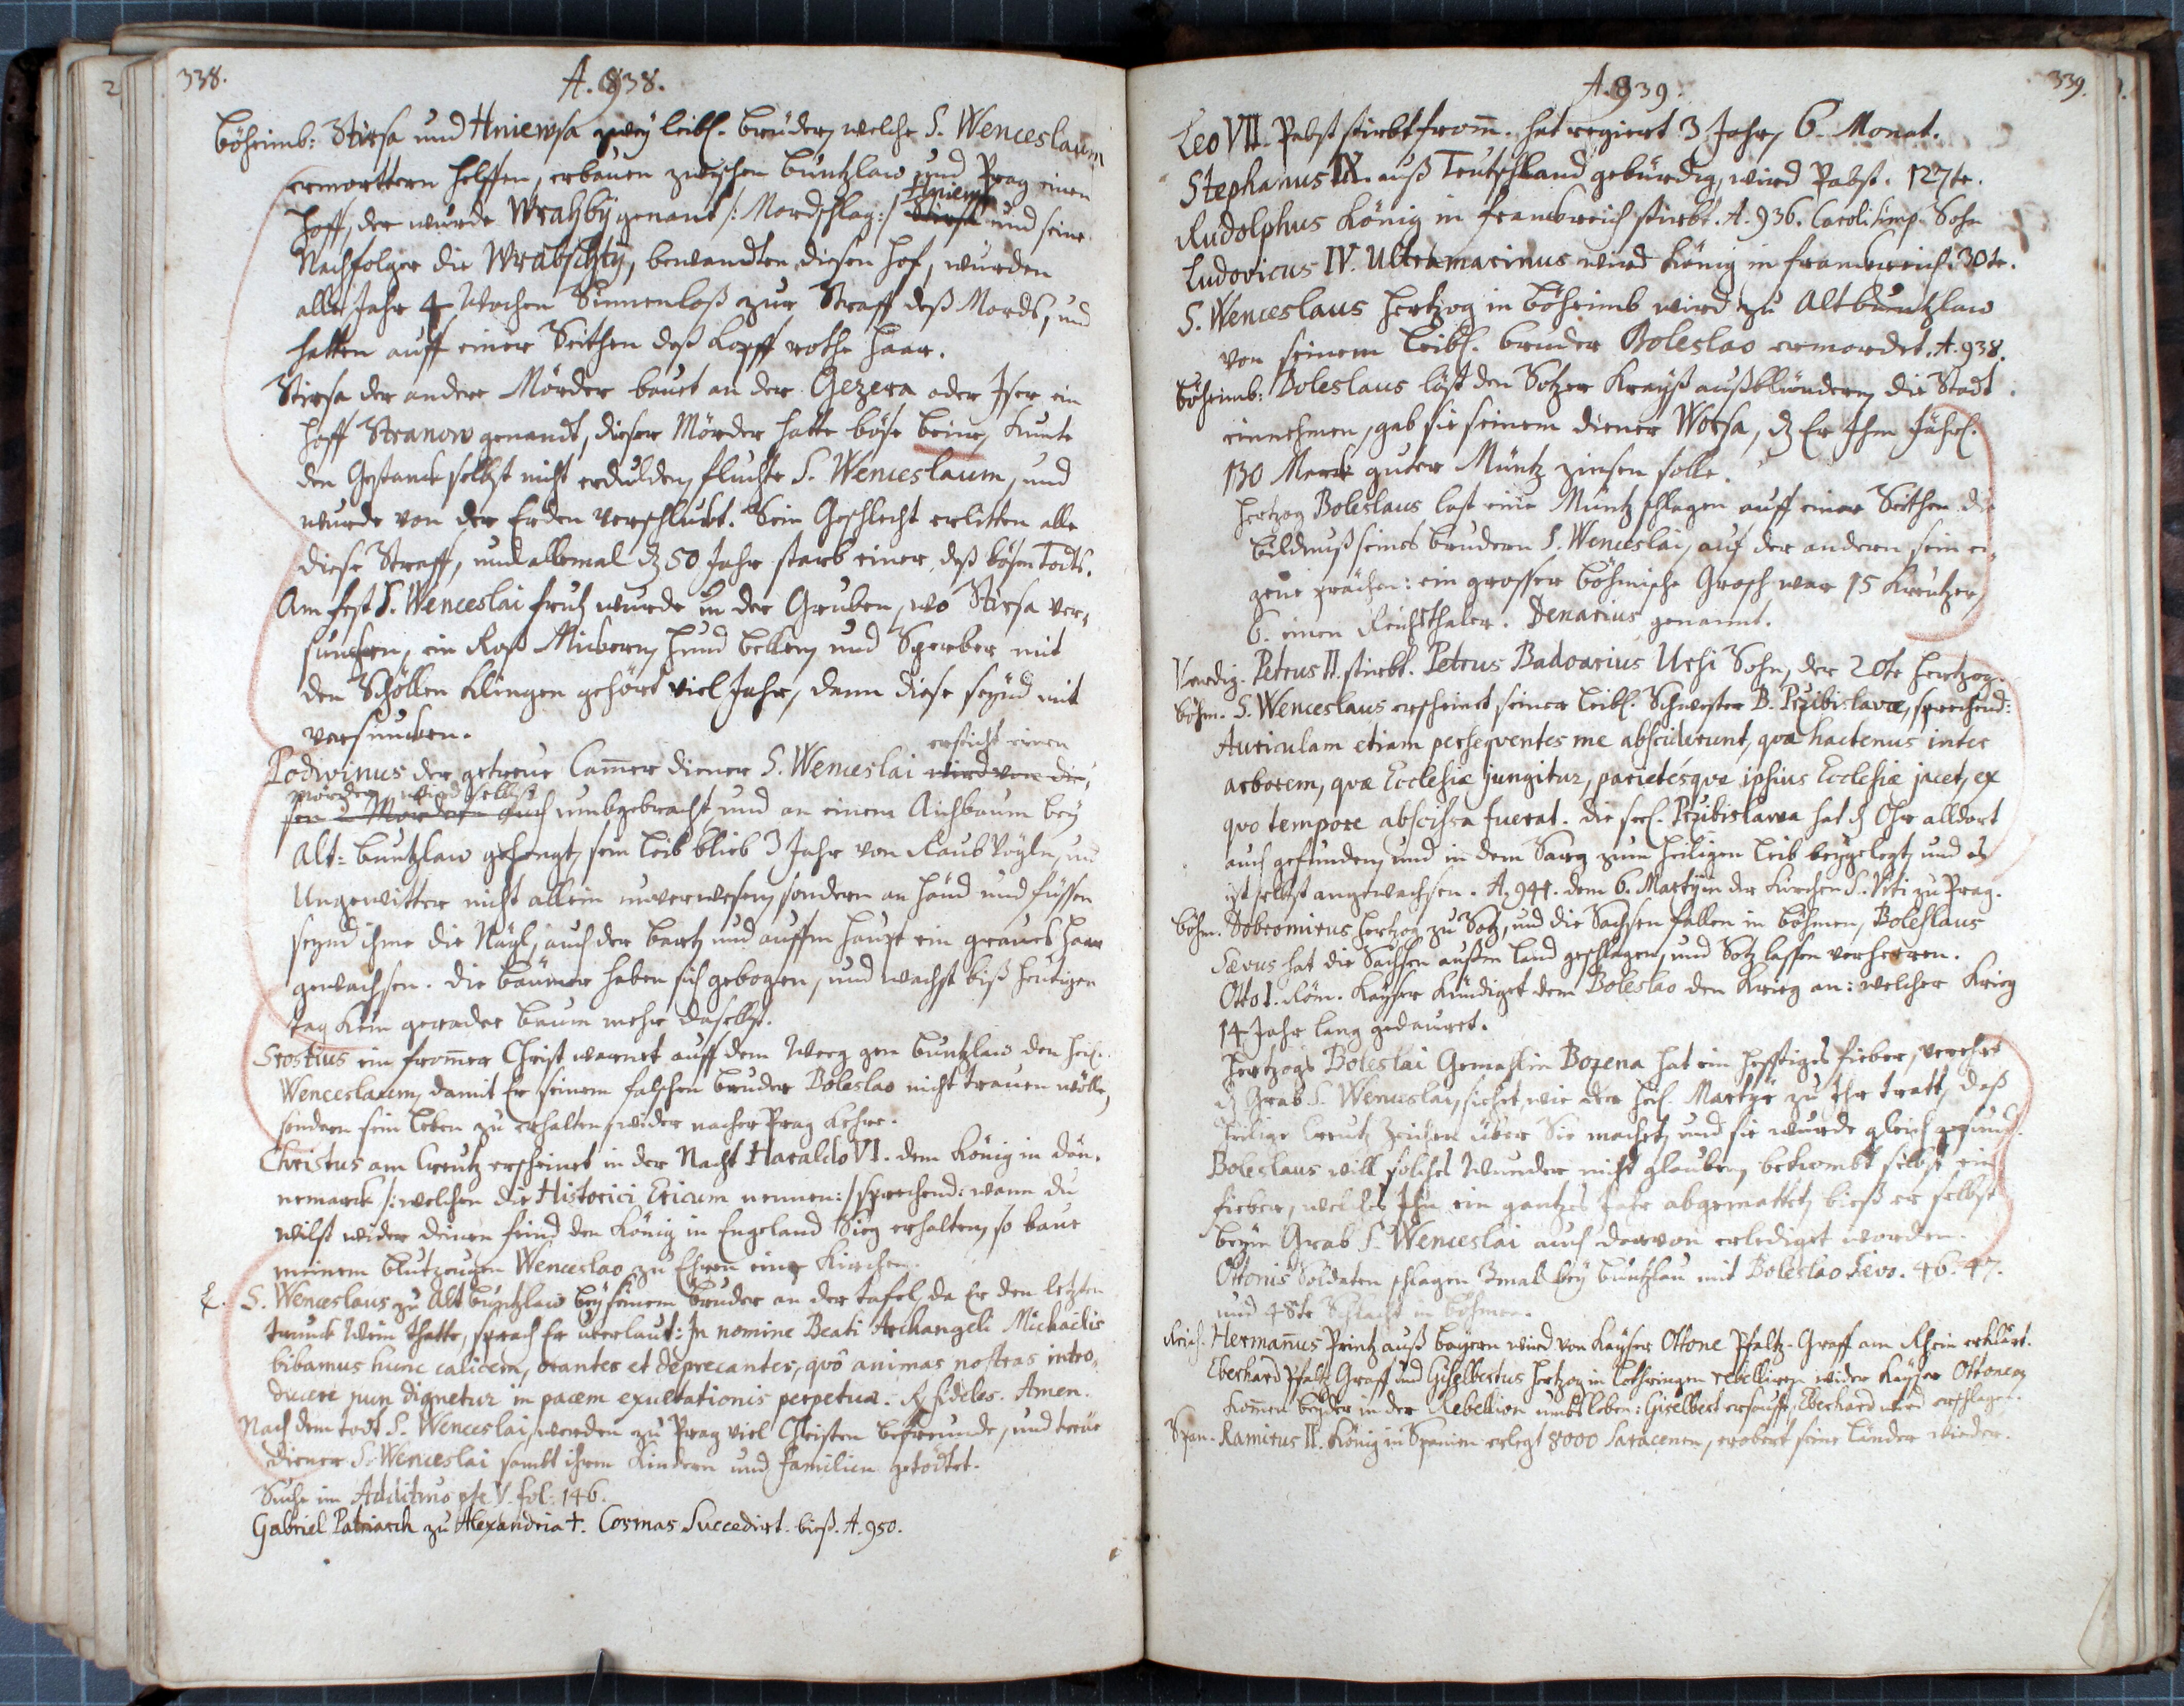 338.
A. 938.
Böheimb: Stirsa und Hniewsa zwey leibl. brüder, welche S. Wenceslaum
ermorttern helffen, erbauen zwischen Buntzlaw und Prag einen
Hniewsa
hoff, der wurde Wrahby genant /: Mordschlag :/ Stirsa und seine
Nachfolger die Wrabschty, bewandten diesen hof, wurden
alle Jahr 4 Wochen Sinnenloß zur Straff deß Mords, und
hatten auff einer Seithen deß Kopff rothe haar.
Stirsa der andere Mörder bauet an der Gezera oder Iser ein
hoff Stranow genandt, dieser Mörder hatte böse beine, kunte
den Gestanck selbst nicht erdulden, fluchte S. Wenceslaum, und
wurde von der Erden verschluckt. Sein Geschlecht erlitten alle
diese Straff, und allemal dz 50 Jahr starb einer deß bösen Todts.
Am fest S. Wenceslai fruh wurde in der Gruben, wo Stirsa ver-
suncken, ein Roß Wiehern, hund bellen, und Sperber mit
den Schöllen klingen gehört viel Jahr, dann diese seynd mit
versuncken.
ersticht einen
Podwinus der getreue Cammer diener S. Wenceslai wird von die-
mörder, wird selbst
sen 2 Mordern auch umbgebracht und an einem Aichbaum bey
Alt-Buntzlaw gehengt, sein leib blieb 3 Jahr von Raub Vögln, und
Ungewitter nicht allein unverwesen, sondern an händ und füssen
seynd ihme die Nägl, auch der bartz und auffm haupt ein graues haar
gewachsen. die bäumer haben sich gebogen, und wachst biß heutigen
tag kein gerader baum mehr daselbst.
Srostius ein frommer Christ warnet auff dem Weeg gen Buntzlaw den heil.
Wenceslaum, damit Er seinem falschen bruder Boleslao nicht trauen wölle,
sondern sein leben zu erhalten, wider nacher Prag kehre.
Christus am Creutz erscheinet in der Nacht Haraldo VI. dem König in Dän-
nemarck /: welchen die Historici Ericum nennen :/ sprechend: wann du
wilst wider deinen feind den König in Engeland Sieg erhalten, so baue
meinem blutzeugen Wenceslao zu Ehren eine Kirchen.
S. Wenceslaus zu Alt buntzlaw bey seinem bruder an der tafel, da Er den letzten
trunck Wein thatte, sprach Er überlaut: In nomine Beati Archangeli Michaelis
bibamus hunc calicem, orantes et deprecantes, quô animas nostras intro-
ducere jun dignetur in pacem exultationis perpetuæ. R fideles. Amen.
Nach dem todt S. Wenceslai, werden zu Prag viel Christen befreunde, und treue
diener S. Wenceslai sambt ihren Kindern und familien getödtet.
Suche im Additus pte V. fol: 146.
Gabriel Patriarch zu Alexandria †. Cosmas Succedirt. bieß. A. 950.
339.
A. 939.
Leo VII. Pabst stirbt from. hat regiert 3 Jahr, 6. Monat.
Stephanus IX. auß Teutschland gebürdig, wird Pabst. 127te.
Rudolphus König in franckreich stirbt. A. 936. Caroli Simp. Sohn
Ludovicus IV. Ultramarinus wird König in franckreich. 30te.
S. Wenceslaus hertzog in böheimb wird zu Altbuntzlaw
von seinem leibl. bruder Boleslao ermordet. A. 938.
Böheimb: Boleslaus läst den Sotzer Krayß außblündern, die Stadt
einnehmen, gab sie seinem diener Worsa, dz Er Ihm jährl.
130 Marck guter Müntz zinsen solle.
hertzog Boleslaus last eine Müntz schlagen auff einer Seithen die
bildnuß seines bruders S. Wenceslai, auf der andern sein ei-
gene prächen: ein grosser böhmische Grosch war 15 Kreutzer,
6. einen Reichsthaler. Denarius genannt.
Venedig. Petrus II. stirbt. Petrus Badoarius Ursi Sohn, der 20te hertzog.
Böhm. S. Wenceslaus erscheinet seiner leibl. Schwester B. Przibislavæ, sprechend:
Auriculam etiam persequentes me absciderunt, quæ hactenus inter
arborem, quæ Ecclesiæ jungitur, parietésque ipsius Ecclesiæ jacet, ex
quo tempore abscissa fuerat. die seel. Przibislawa hat dz Ohr alldort
auch gefunden, und in dem Sarg zum heiligen leib beygelegt, und es
ist selbst angewachsen. A. 944. dem 6. Martij in der Kirchen S. Viti zu Prag.
Böhm. Dobromirus hertzog zu Sotz, und die Sachsen fallen in böhmen, Boleslaus
Sævus hat die Sachsen außm land geschlagen, und Sotz lassen verheeren.
Otto I. Röm. Kayser kündiget dem Boleslao den Krieg an: welcher Krieg
14 Jahr lang gedauret.
hertzogs Boleslai Gemahlin Bozena hat ein hefftiges fieber, verehrt
dz Grab S. Wenceslai, siehet, wie der heil. Martyr zu Ihr tratt, daß
heilige Creutz Zeichen über Sie machet, und sie wurde gleich gesund.
Boleslaus will solches Wunder nicht glauben, bekombt selbst ein
fieber, welches Ihn ein gantzes Jahr abgemattet, bieß er selbst
beym Grab S. Wenceslai auch darvon erlediget worden.
Ottonis Soldaten schlagen 3mal bey Buntzlau mit Boleslao Sævo. 46. 47.
und 48te Schlacht in böhmen.
Reich. Hermannus Printz auß bayern wird von Kayser Ottone Pfaltz-Graff am Rhein erklärt.
Eberhard Pfaltz Graff und Giselbertus hertzog in Lothringen rebelliren wider Kayser Ottonem
kommen beyde in der Rebellion umbs leben: Giselbert ersaufft, Eberhard wird erschlagen.
Span. Ramirus II. König in Spanien erlegt 8000 Saracenen, erobert seine länder wieder.